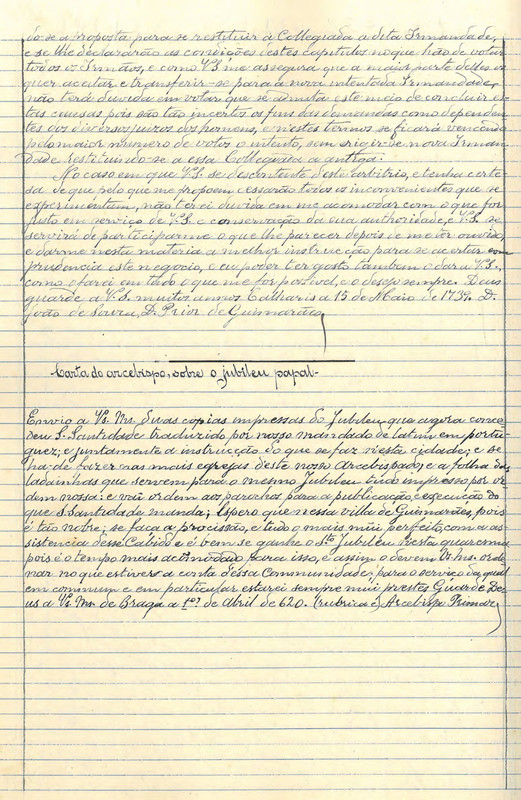 do-se a proposta para se restituir á Collegiada a dita Irmandade,
e se lhe declararão as condições destes capitulos no que hão de votar
todos os Irmãos, e como V.S. me assegura que a maior parte delles os
quer aceitar e transferir-se para a nova intentada Irmandade,
não terá duvida em votar que se admita este meio de concluir es-
tas causas pois são tão incertos os fins das demandas como dependen-
tes dos diversos juizos dos homens, e nestes termos se ficará vencendo
pelo maior numero de votos o intento, sem erigir-se nova Irman-
dade restituindo-se a essa Collegiada a antiga:
No caso em que V.S. se descontente deste arbitrio, e tenha certe-
sa de que pelo que me propoem cessarão todos os inconvenientes que se
experimentam, não terei duvida em me acomodar com o que for
justo em serviço de V.S. e conservação da sua authoridade, e V.S. se
servirá de participarme o que lhe parecer depois de me ter ouvido,
e darme nesta materia a melhor instrucção para se acertar com
prudencia este negocio, e eu poder ter gosto tambem o dar a V.S.,
como o farei em tudo o que me for possivel, e o desejo sempre. Deus
guarde a V.S. muitos annos Calhariz a 15 de Maio de 1739. D.
João de Sousa, D. Prior de Guimarães
Carta do arcebispo, sobre o jubileu papal-
Envio a Vs. Ms. duas copias impressas do Jubileu que agora conce-
deu S. Santidade traduzido por nosso mandado de latim em portu-
guez; e juntamente a instrucção do que se faz nesta cidade; e se
ha-de fazer nas mais egrejas deste nosso Arcebispado; e a folha das
ladainhas que servem para o mesmo Jubileu tudo impresso por or-
dem nossa: e vai ordem aos parochos para a publicação, e execução do
que S. Santidade manda; Espero que nessa villa de Guimarães, pois
é tão nobre; se faça a procissão, e tudo o mais mui perfeito, com a as-
sistencia desse Cabido e é bem se ganhe o Sto. Jubileu nesta quaresma
pois é o tempo mais acomodado para isso, e assim o devem Vs. Ms. orde-
nar no que estiver á conta dessa Communidade; para o serviço da qual
em commum e em particular estarei sempre mui prestes Guarde De-
us a Vs. Ms. de Braga a 1º de Abril de 620. (rubrica e) Arcebispo Primaz